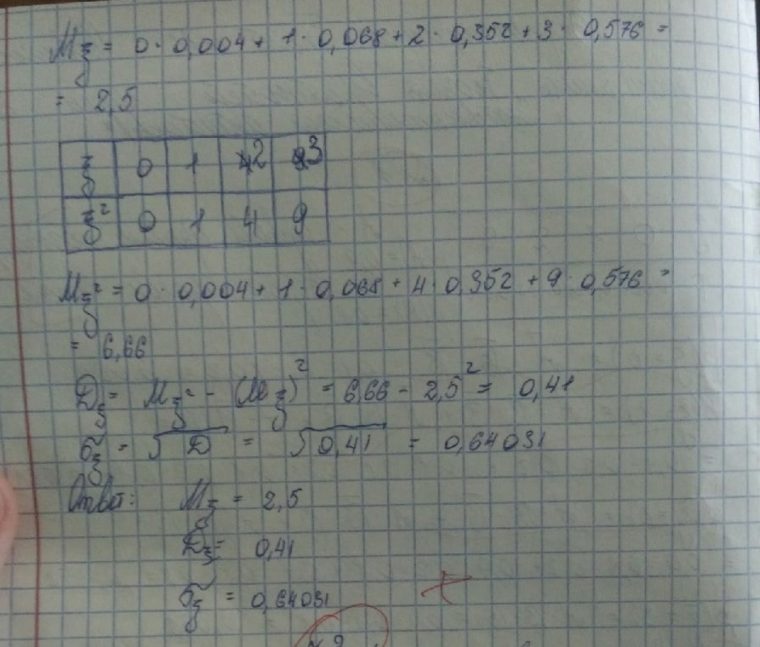 Mξ = 0 · 0,004 + 1 · 0,068 + 2 · 0,352 + 3 · 0,576 =
= 2,5
ξ 0 1 2 3
ξ² 0 1 4 9
Mξ² = 0 · 0,004 + 1 · 0,068 + 4 · 0,352 + 9 · 0,576 =
= 6,66
Dξ = Mξ² - (Mξ)² = 6,66 - 2,5² = 0,41
σξ = √D = √0,41 = 0,64031
Ответ: Mξ = 2,5
Dξ = 0,41
σξ = 0,64031